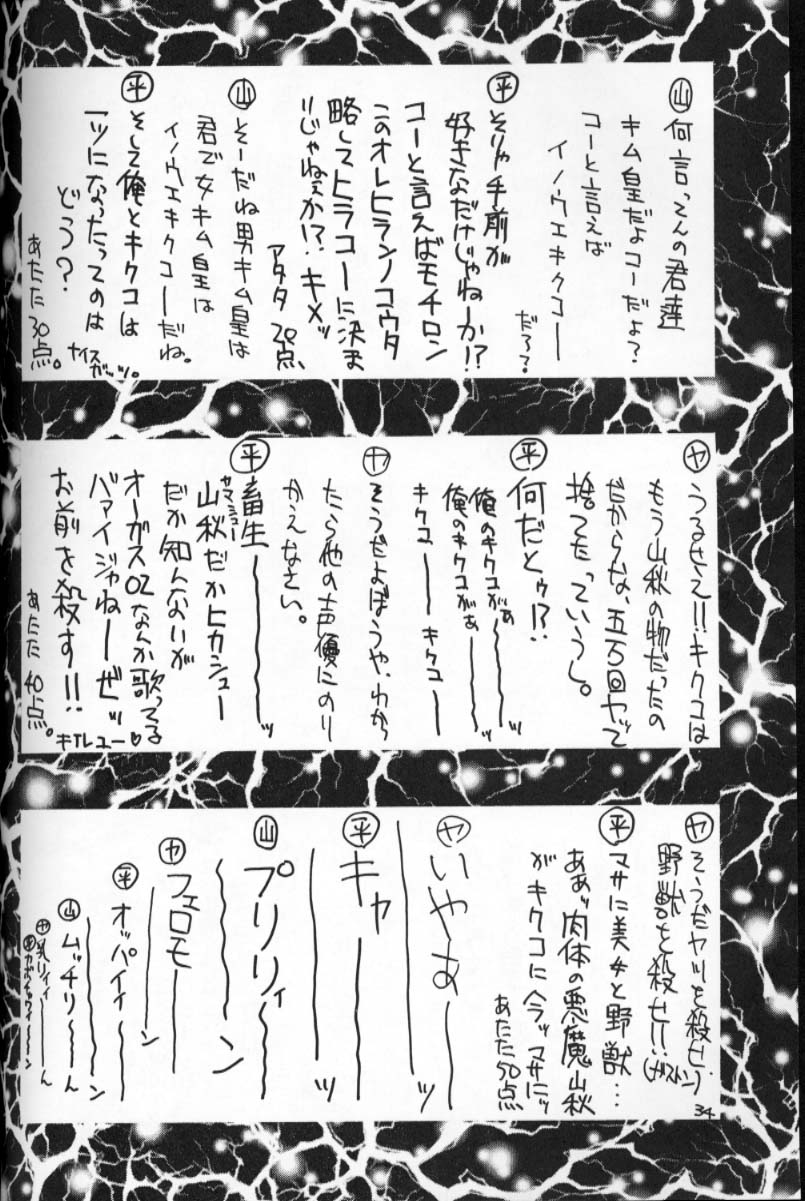 ㊤山 何言ってんの君達
キム皇だよコーだよ？
コーと言えば
イノウエキクコー
だろ？
㊥平 そりゃ手前が
好きなだけじゃねーか!?
コーと言えばモチロン
このオレヒラノコウタ
略してヒラコーに決ま
りじゃねぇか!?キメッ
アタタ 20点、
山 そーだね男キム皇は
君で女キム皇は
イノウエキクコーだね。
平 そして俺とキクコは
一ツになったってのは
どう？
ナイスガッツ。
あたた 30点。
ヤ うるせえ!!キクコは
もう山秋の物だったの
だからな、五万回ヤッて
捨てたっていうし。
平 何だとゥ!?
俺のキクコがぁ〜〜ッ
俺のキクコがぁ〜〜ッ
キクコーー キクコーー
ヤ そうだよぼうや、わから
たら他の声優にのり
かえなさい。
平 畜生〜〜〜ッ
山秋だかヒカシュー
ヤマシュー
だか知んないが
オーガス02なんか歌ってる
バァイジャねーぜッ
お前を殺す!!
キTレユー♡
あたた 40点。
ヤ そうだヤツを殺せ、
野獣を殺せ!!(ガストン)
平 マサに美女と野獣…
ああッ肉体の悪魔山秋
がキクコにヘラッマサにッ
あたた50点
ヤ いやあーーーッ
平 キャーーーッ
山 プリリィ〜〜〜ン
ヤ フェロモーーン
平 オッパイィ〜〜ン
山 ムッチリ〜〜ん
ヤ 乳リィィ〜〜ん
34